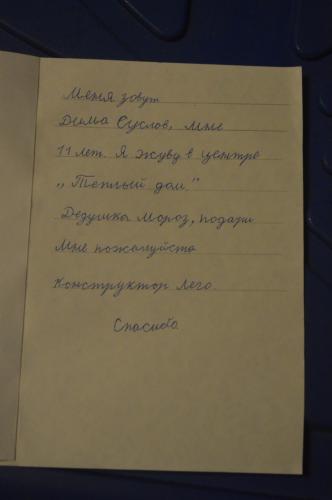 Меня зовут
Дима Суслов, мне
11 лет. Я живу в центре
„Теплый дом."
Дедушка мороз, подари
Мне пожалуйста
Конструктор Лего.
Спасибо